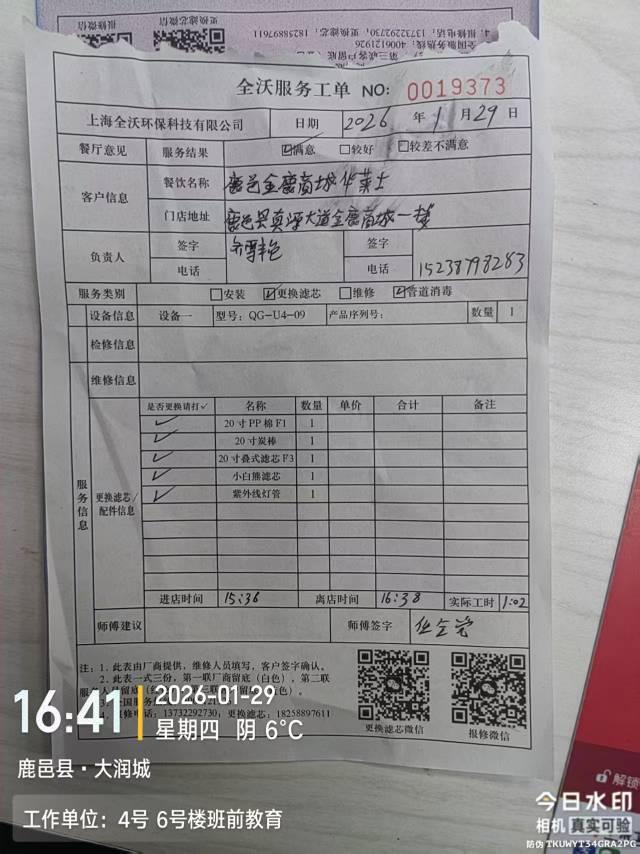 更换滤芯微信
报修微信
4. 报修电话：13732292730；更换滤芯：18258897611
全国服务热线：4006121926
全沃服务工单 NO: 0019373
上海全沃环保科技有限公司 日期 2026 年 1 月 29 日
餐厅意见 服务结果 ☑满意 □较好 □较差不满意
客户信息 餐饮名称 鹿邑金鹿商城华莱士
门店地址 鹿邑县真源大道金鹿商城一楼
负责人 签字 签字
电话 电话 15238798283
服务类别 □安装 ☑更换滤芯 □维修 ☑管道消毒
设备信息 设备一 型号：QG-U4-09 产品序列号： 数量 1
检修信息
维修信息
服务信息 更换滤芯/配件信息
是否更换请打✓ 名称 数量 单价 合计 备注
✓ 20寸PP棉F1 1
✓ 20寸炭棒 1
✓ 20寸叠式滤芯F3 1
✓ 小白熊滤芯 1
✓ 紫外线灯管 1
进店时间 15:36 离店时间 16:38 实际工时 1:02
师傅建议 师傅签字
注：1. 此表由厂商提供，维修人员填写，客户签字确认。
2. 此表一式三份，第一联厂商留底（白色），第二联
更换滤芯微信 报修微信
4. 报修电话：13732292730；更换滤芯：18258897611
16:41
2026-01-29
星期四 阴 6°C
鹿邑县·大润城
工作单位：4号 6号楼班前教育
解锁
今日水印
相机 真实可验
防伪 TKUWYT34GRA2PG